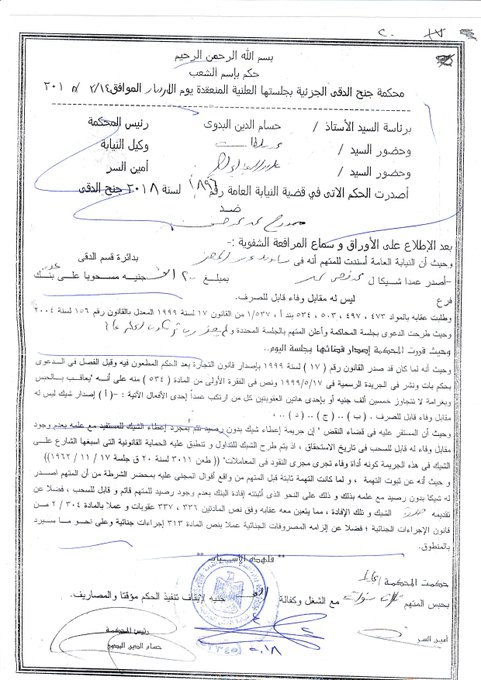 بسم الله الرحمن الرحيم
حكم بإسم الشعب
محكمة جنح الدقى الجزئية بجلستها العلنية المنعقدة يوم الموافق ٢٠١
برئاسة السيد الأستاذ / حسام الدين البدوى رئيس المحكمة
وحضور السيد / وكيل النيابة
وحضور السيد / أمين السر
أصدرت الحكم الاتى فى قضية النيابة العامة رقم لسنة ٢٠١٨ جنح الدقى
ضد
بعد الإطلاع على الأوراق و سماع المرافعة الشفوية :-
وحيث أن النيابة العامة أسندت للمتهم أنه فى بدائرة قسم الدقى
-أصدر عمدا شيكا ل بمبلغ جنيه مسحوبا على بنك
فرع ليس له مقابل وفاء قابل للصرف.
وطلبت عقابه بالمواد ٤٧٣ ، ٤٩٧ ، ٥٠٣ ، ٥٣٤ بند أ ، ١/٥٣٧ من القانون ١٧ لسنة ١٩٩٩ المعدل بالقانون رقم ١٥٦ لسنة ٢٠٠٤
وحيث طرحت الدعوى بجلسة المحاكمة وأعلن المتهم بالجلسة المحددة و
وحيث قررت المحكمة إصدار قضائها بجلسة اليوم..
وحيث أنه لما كان قد صدر القانون رقم ( ١٧ ) لسنة ١٩٩٩ بإصدار قانون التجارة بعد الحكم المطعون فيه وقبل الفصل فى الدعوى
بحكم بات ونشر فى الجريدة الرسمية فى ١٩٩٩/٥/١٧ ونص فى الفقرة الأولى من المادة ( ٥٣٤ ) منه على أنه "يعاقب بالحبس
وبغرامة لا تتجاوز خمسين ألف جنيه أو بإحدى هاتين العقوبتين كل من ارتكب عمداً إحدى الأفعال الآتية : - ( أ ) إصدار شيك ليس له
مقابل وفاء قابل للصرف . ( ب ) ... ( ج ) .. ( د ) ...
وحيث أن المستقر عليه فى قضاء النقض " إن جريمة إعطاء شيك بدون رصيد تتم بمجرد إعطاء الشيك للمستفيد مع علمه بعدم وجود
مقابل وفاء له قابل للسحب فى تاريخ الاستحقاق ، اذ يتم طرح الشيك للتداول و تنطبق عليه الحماية القانونية التى اسبغها الشارع على
الشيك فى هذه الجريمة كونه أداة وفاء تجرى مجرى النقود فى المعاملات" (( طعن ٣٠١١ لسنة ٢٠ ق جلسة ١٧ / ١١ / ١٩٦٢ ))
و حيث أنه عن ثبوت التهمة ، و لما كانت التهمة ثابتة قبل المتهم من واقع أقوال المجنى عليه بمحضر الشرطة من أن المتهم اصدر
له شيكا بدون رصيد مع علمه بذلك و ذلك على النحو الذى أثبته إفادة البنك بعدم وجود رصيد للمتهم قائم و قابل للسحب ، فضلا عن
تقديمه الشيك و تلك الإفادة ، مما يتعين معه عقابه وفق نص المادتين ٣٣٦ ، ٣٣٧ عقوبات و عملا بالمادة ٣٠٤ / ٢ من
قانون الإجراءات الجنائية ؛ فضلا عن إلزامه المصروفات الجنائية عملا بنص المادة ٣١٣ إجراءات جنائية وعلى نحو ما سيرد
بالمنطوق.
" فلهذه الأسباب "
حكمت المحكمة
بحبس المتهم مع الشغل وكفالة جنيه لإيقاف تنفيذ الحكم مؤقتا والمصاريف.
أمين السر رئيس المحكمة
حسام الدين البدوى